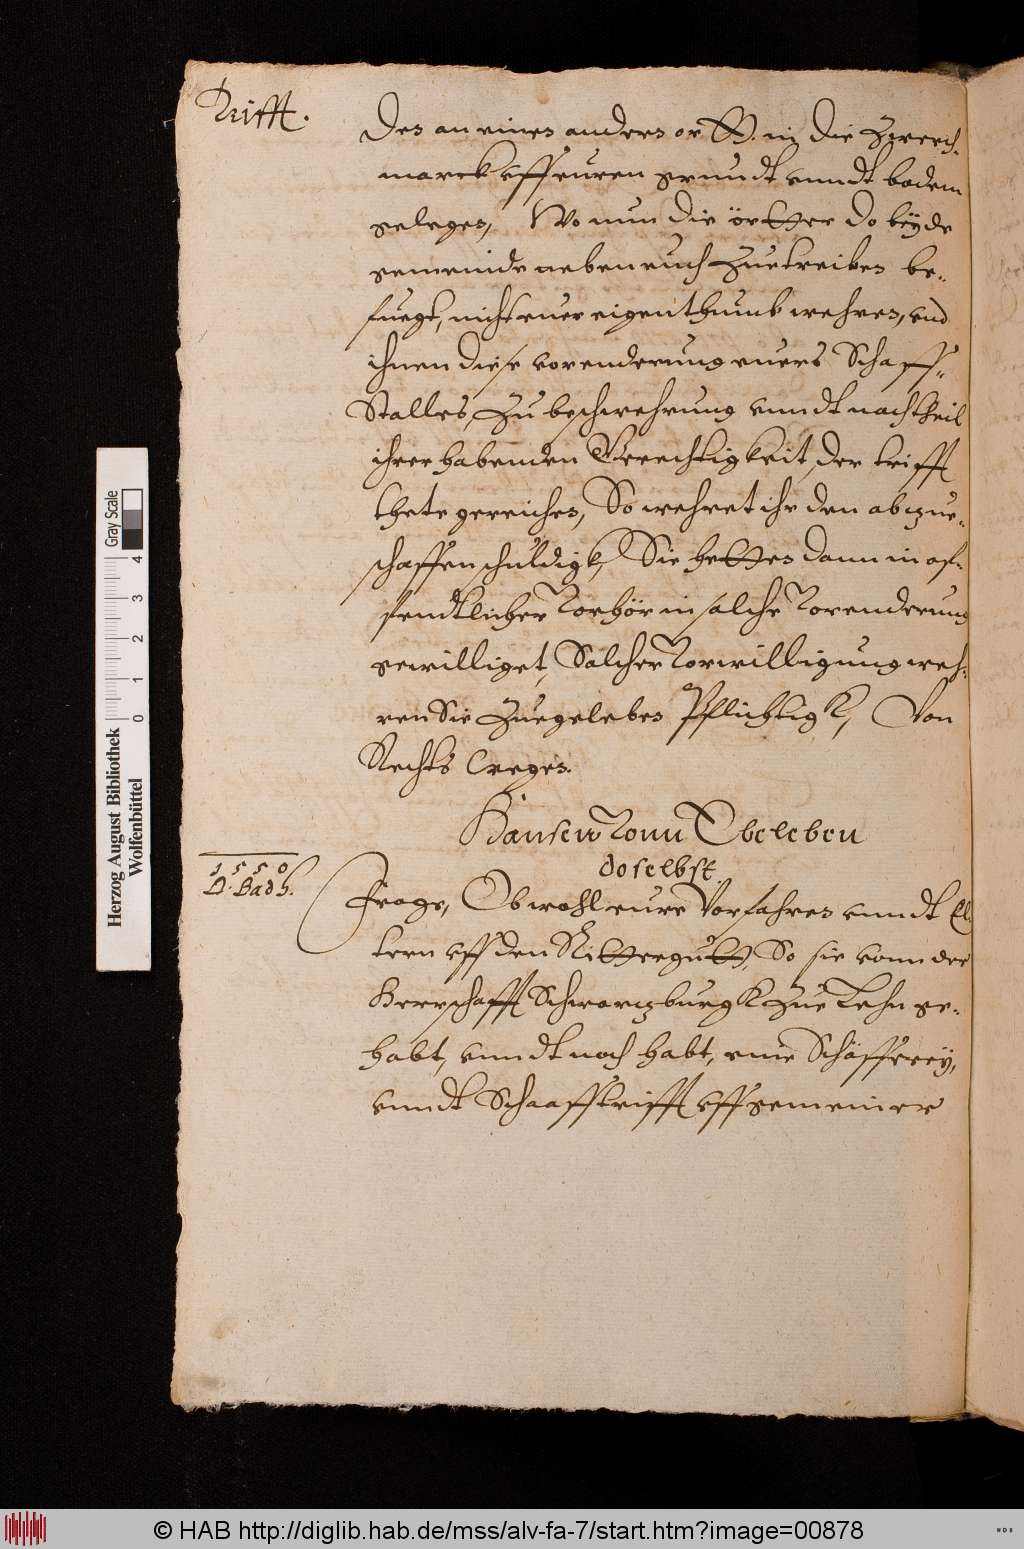 Trifft.
des an eines anders ortt. in die Zwerch-
marck uff euren grundt unndt bodem
geleges, Wo nun die örtter do beyde
gemeinde neben euch Zue treiben be-
fuegt, nicht euer eigenthumb wehres, und
ihnen diese vorenderung euers Schaff-
Stalles, Zu beschwehrung unndt nachtheil
ihrer habenden Gerechtigkeit der trifft
thete gereichen, So wehret ihr den abzue-
schaffen schuldigk, Sie hettes dann in of-
fendtlicher Vorhör in solche Vorenderung
gewilliget, Solcher Vorwilligung weh-
ren Sie Zuegeleben Pflichtigk, Von
Rechts weges.
Hansen Vonn Ebeleben
doselbst.
1550
D. Badh.
Frage, Ob wohl eure Vorfahres unndt El-
tern uff den Rittergutt, So sie vonn der
Herrschafft Schwarzburgk Zue Lehn ge-
habt, unndt noch habt, eine Schäfferey,
unndt Schaafftrifft uff gemeiner
Herzog August Bibliothek
Wolfenbüttel
0 1 2 3 4
Gray Scale
© HAB http://diglib.hab.de/mss/alv-fa-7/start.htm?image=00878